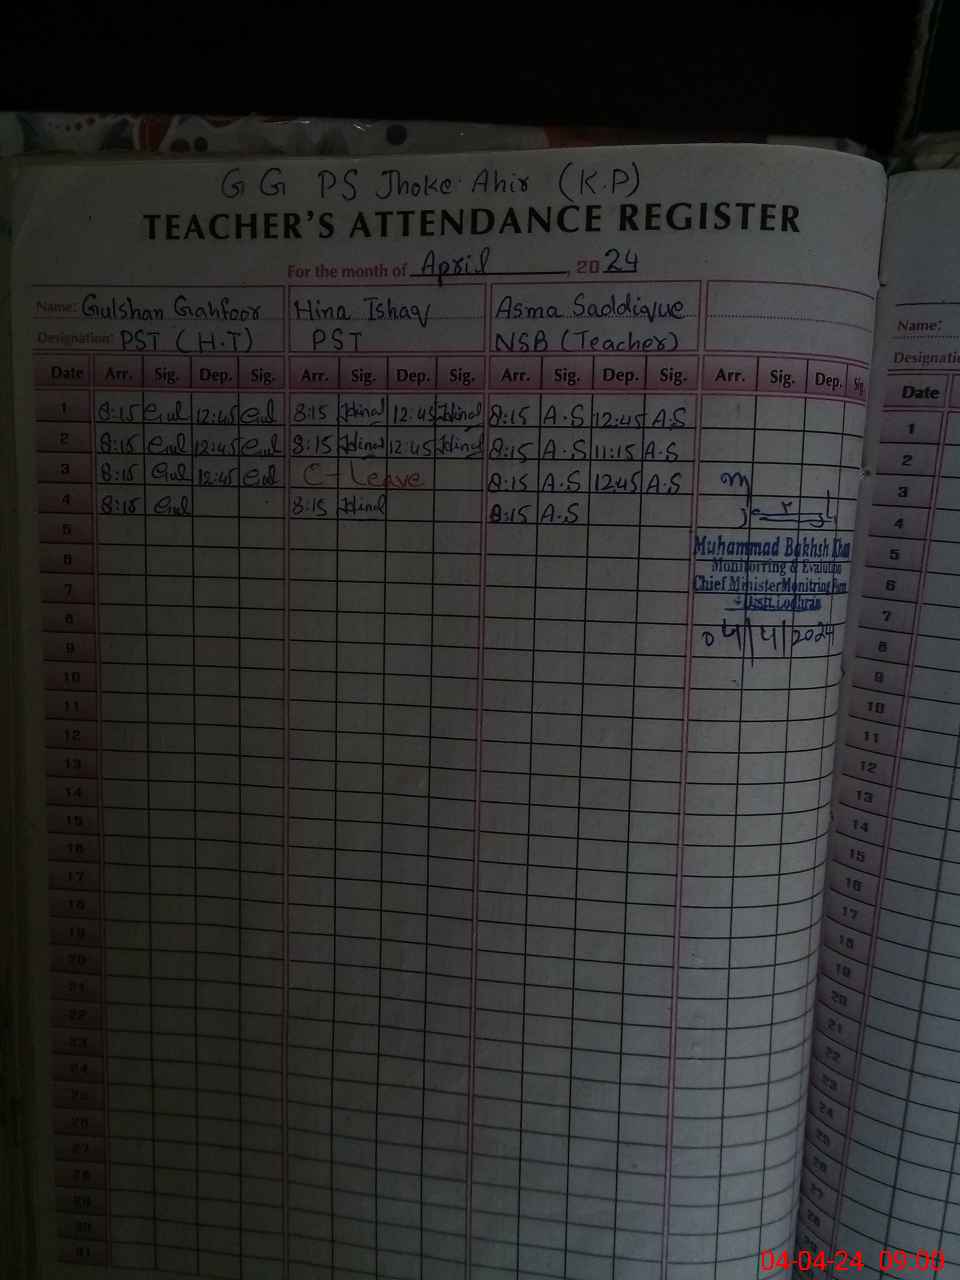 G G PS Jhoke Ahir (K.P)
TEACHER'S ATTENDANCE REGISTER
For the month of April, 2024
Name: Gulshan Gahfoor Hina Ishaq Asma Saddique
Designation: PST (H.T) PST NSB (Teacher)
Date Arr. Sig. Dep. Sig. Arr. Sig. Dep. Sig. Arr. Sig. Dep. Sig. Arr. Sig. Dep. Sig.
1 8:15 Gul 12:45 Gul 8:15 Hina 12:45 Hina 8:15 A.S 12:45 A.S
2 8:15 Gul 12:45 Gul 8:15 Hina 12:45 Hina 8:15 A.S 11:15 A.S
3 8:15 Gul 12:45 Gul C-Leave 8:15 A.S 12:45 A.S
4 8:15 Gul 8:15 Hina 8:15 A.S
5
6
7
8
9
10
11
12
13
14
15
16
17
18
19
20
21
22
23
24
25
26
27
28
29
30
31
Muhammad Bakhsh Khan
Monitorring & Evalution
Chief Minister Monitring
Distt. Lodhran
04/4/2024
Name:
Designatio
Date
1
2
3
4
5
6
7
8
9
10
11
12
13
14
15
16
17
18
19
20
21
22
23
24
25
26
27
28
04-04-24 09:00